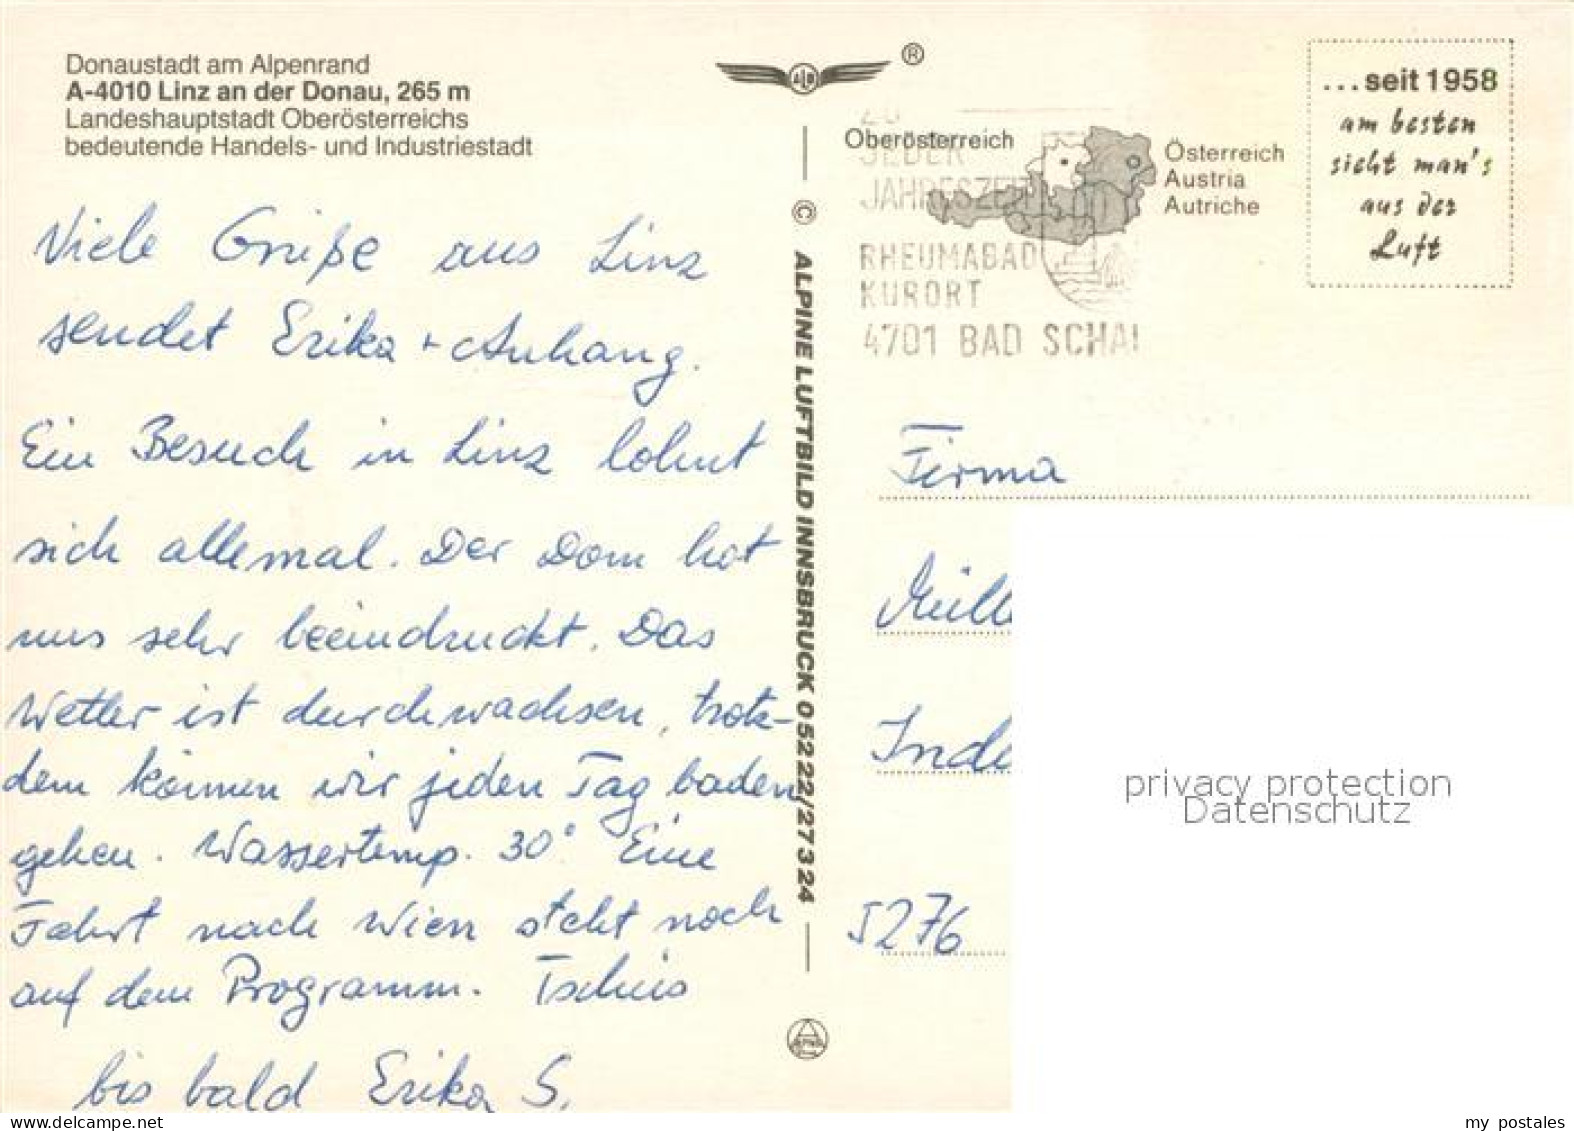 Donaustadt am Alpenrand
A-4010 Linz an der Donau, 265 m
Landeshauptstadt Oberösterreichs
bedeutende Handels- und Industriestadt
Viele Grüße aus Linz
sendet Erika + Anhang.
Ein Besuch in Linz lohnt
sich allemal. Der Dom hat
uns sehr beeindruckt. Das
Wetter ist durchwachsen, trotz-
dem können wir jeden Tag baden
gehen. Wassertemp. 30° Eine
Fahrt nach Wien steht noch
auf dem Programm. Tschüs
bis bald Erika S.
© ALPINE LUFTBILD INNSBRUCK 0 52 22/27 3 24
®
Oberösterreich
Österreich
Austria
Autriche
ZU
JEDER
JAHRESZEIT
RHEUMABAD
KURORT
4701 BAD SCHAL
...seit 1958
am besten
sieht man's
aus der
Luft
Firma
Müll
Inde
5276
privacy protection
Datenschutz
my postales
www.delcampe.net